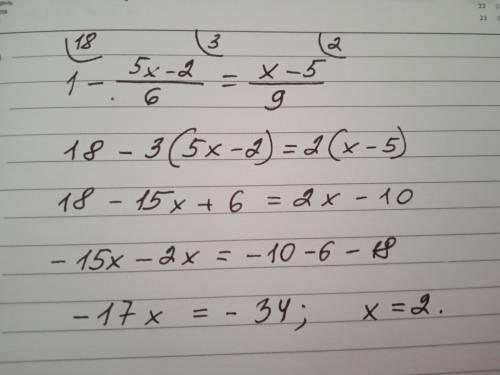 18 3 2
1 - (5x-2)/6 = (x-5)/9
18 - 3(5x-2) = 2(x-5)
18 - 15x + 6 = 2x - 10
-15x - 2x = -10 - 6 - 18
-17x = -34; x = 2.